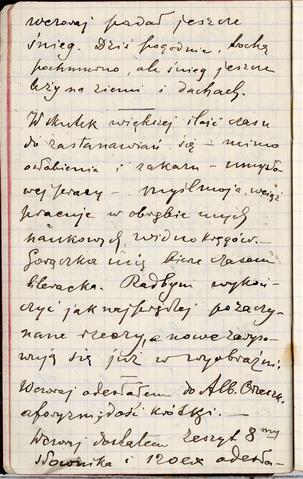 wczoraj padał jeszcze
śnieg. Dziś pogodnie, trochę
pochmurno, ale śnieg jeszcze
leży na ziemi i dachach.
Wskutek większej ilości czasu
do zastanawiań się – mimo
osłabienia i zakazu – umysło-
wej pracy – myśl moja wciąż
pracuje w obrębie mych
naukowych widnokręgów. –
Gorączka mię bierze czasem
literacka. Radbym wykoń-
czyć jak najprędzej pozaczy-
nane rzeczy, a nowe zaryso-
wują się już w wyobraźni.
Wczoraj odesłałem do Alb.
aforyzm, dość krótki. –
Wczoraj dostałem zeszyt 8my
Słownika i 120 ex odesła-